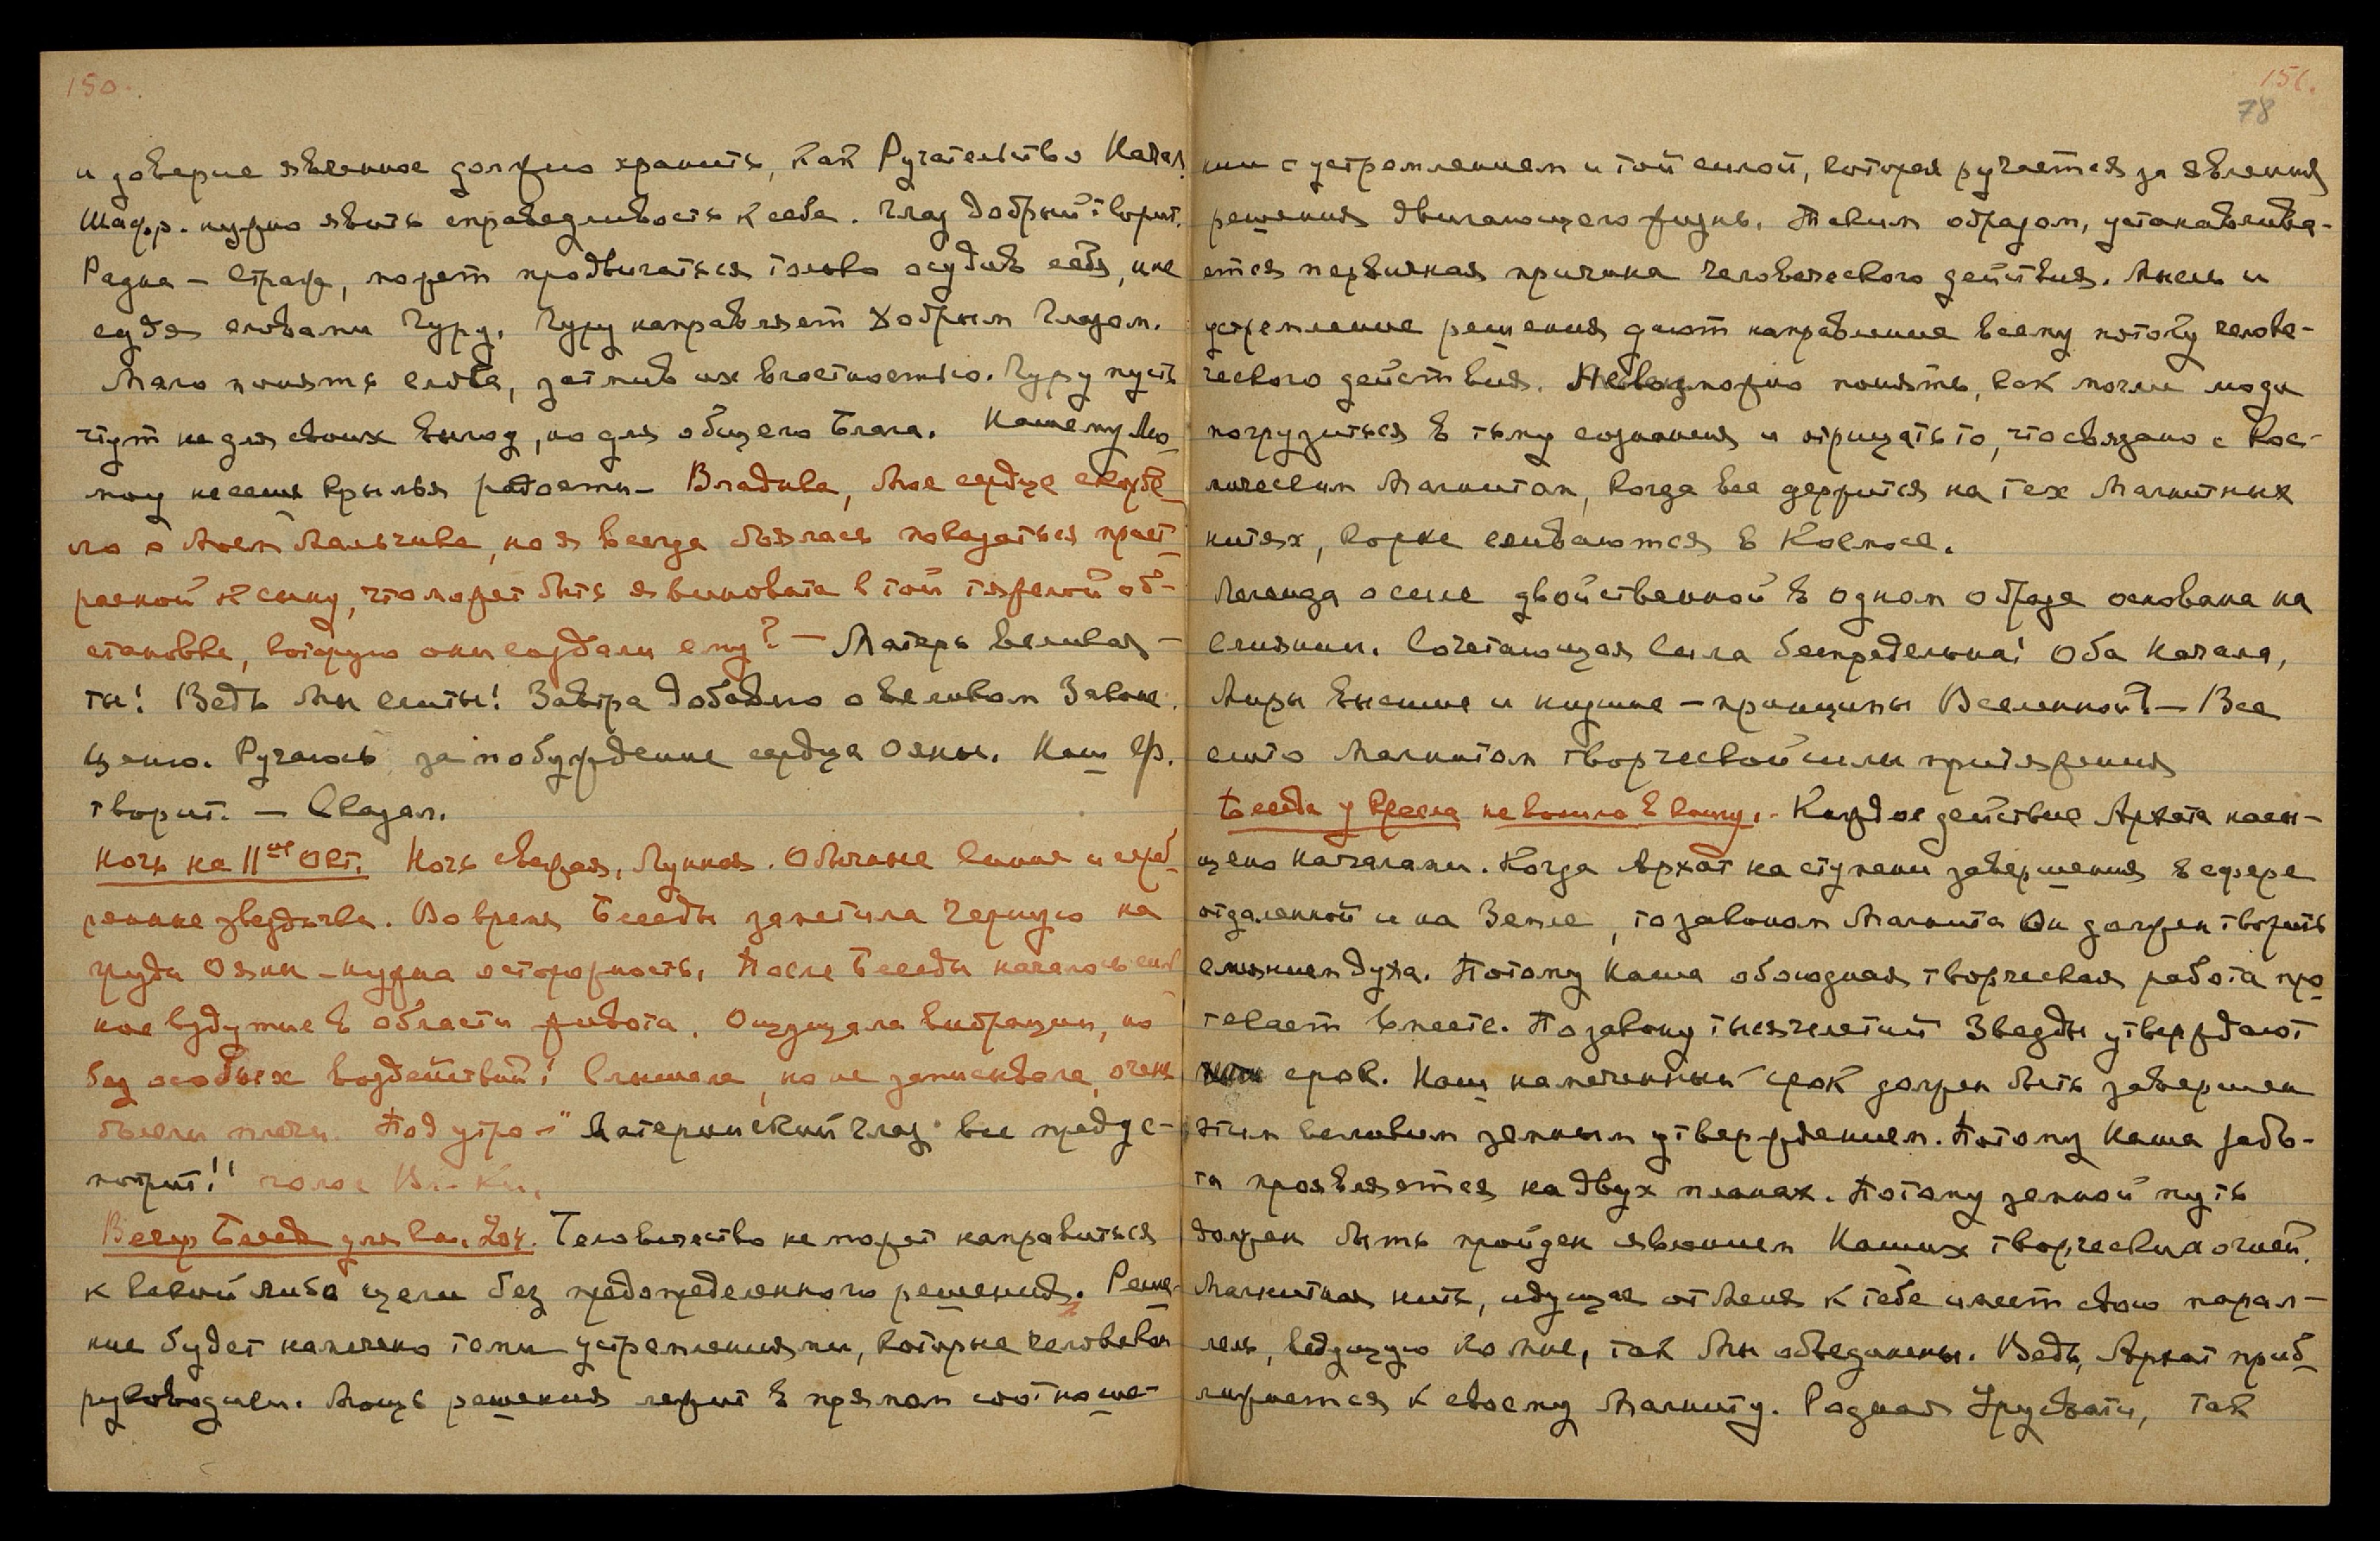 150.
и доверие явленное должно хранить, как Ручательство Начал.
Шафр. нужно явить справедливость к себе. Глаз добрый творит.
Радна – Страж, может продвигаться только осудив себя, и не
судя словами Гуру. Гуру направляет добрым глазом.
Мало понять слова, затмив их властностью. Гуру пусть
чтут не для своих выгод, но для общего Блага. Нашему Лю-
моу несем крылья радости – Владыка, Мое сердце скорбе-
ло о Моем Мальчике, но я всегда боялась показаться прист-
растной к сыну, что может быть я виновата в той тяжелой об-
становке, которую они создали ему? – Матерь Великая –
ты! Ведь Мы слиты! Завтра добавлю о великом Законе.
Ценю. Ручаюсь за побуждение сердца Ояны. Наш Ф.
творит. – Сказал.
Ночь на 11ое Окт. Ночь свежая, Лунная. Обычные Синие и сереб-
рянные звездочки. Во время Беседы заметила черную на
груди Ояны – нужна осторожность. После Беседы началось силь
ное вздутие в области живота. Ощущала вибрации, но
без особых воздействий! Слышала, но не записывала, очень
болели плечи. Под утро – "Материнский глаз все предус-
мотрит!" голос Вл–ки.
Вечер Беседа для Кн. Человечество не может направиться
к какой либо цели без предопределенного решения. Реше-
ние будет намечено теми устремлениями, которые человеком
руководили. Мощь решения лежит в прямом соотноше-
151.
78
нии с устремлением и той силой, которая ручается за явления
решения двигающего жизнь. Таким образом, устанавлива-
ется первичная причина человеческого действия. Мысль и
устремление решения дают направление всему потоку челове-
ческого действия. Невозможно понять, как могли люди
погрузиться в тьму сознания и отрицать то, что связано с Кос-
мическим Магнитом, когда все держится на тех Магнитных
нитях, корни сливаются в Космосе.
Легенда о силе двойственной в одном образе основана на
слиянии. Сочетающая Сила беспредельна! Оба Начала,
Миры высшие и низшие – принципы Вселенной? – Все
слито Магнитом творческой силы притяжения
Беседа у Кресла не вошло в книгу. – Каждое действие Архата насы-
щено Началами. Когда Архат на ступени завершения в сфере
отдаленной и на Земле, то законом Магнита Он должен творить
слиянием духа. Потому Наша обоюдная творческая работа про-
текает вместе. По закону тысячелетий Звезды утверждают
срок. Наш намеченный срок должен быть завершен
этим великим земным утверждением. Потому Наша рабо-
та проявляется на двух планах. Потому земной путь
должен быть пройден явлением Наших творческих огней.
Магнитная нить, идущая от Меня к тебе имеет свою парал-
лель, ведущую ко Мне, так Мы объединены. Ведь, Архат приб-
лижается к своему Магниту. Родная Урусвати, так